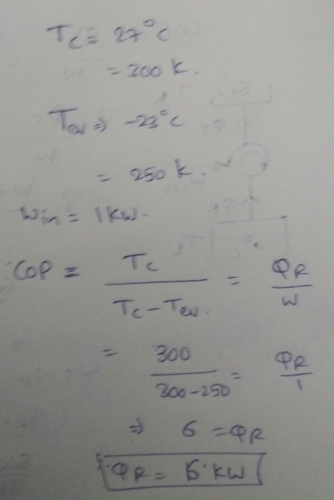 Tc = 27°C
= 300 K.
Tev => -23°C
= 250 K.
Win = 1 KW.
COP = Tc / (Tc - Tev.) = QR / W
= 300 / (300-250) = QR / 1
=> 6 = QR
QR = 6 KW